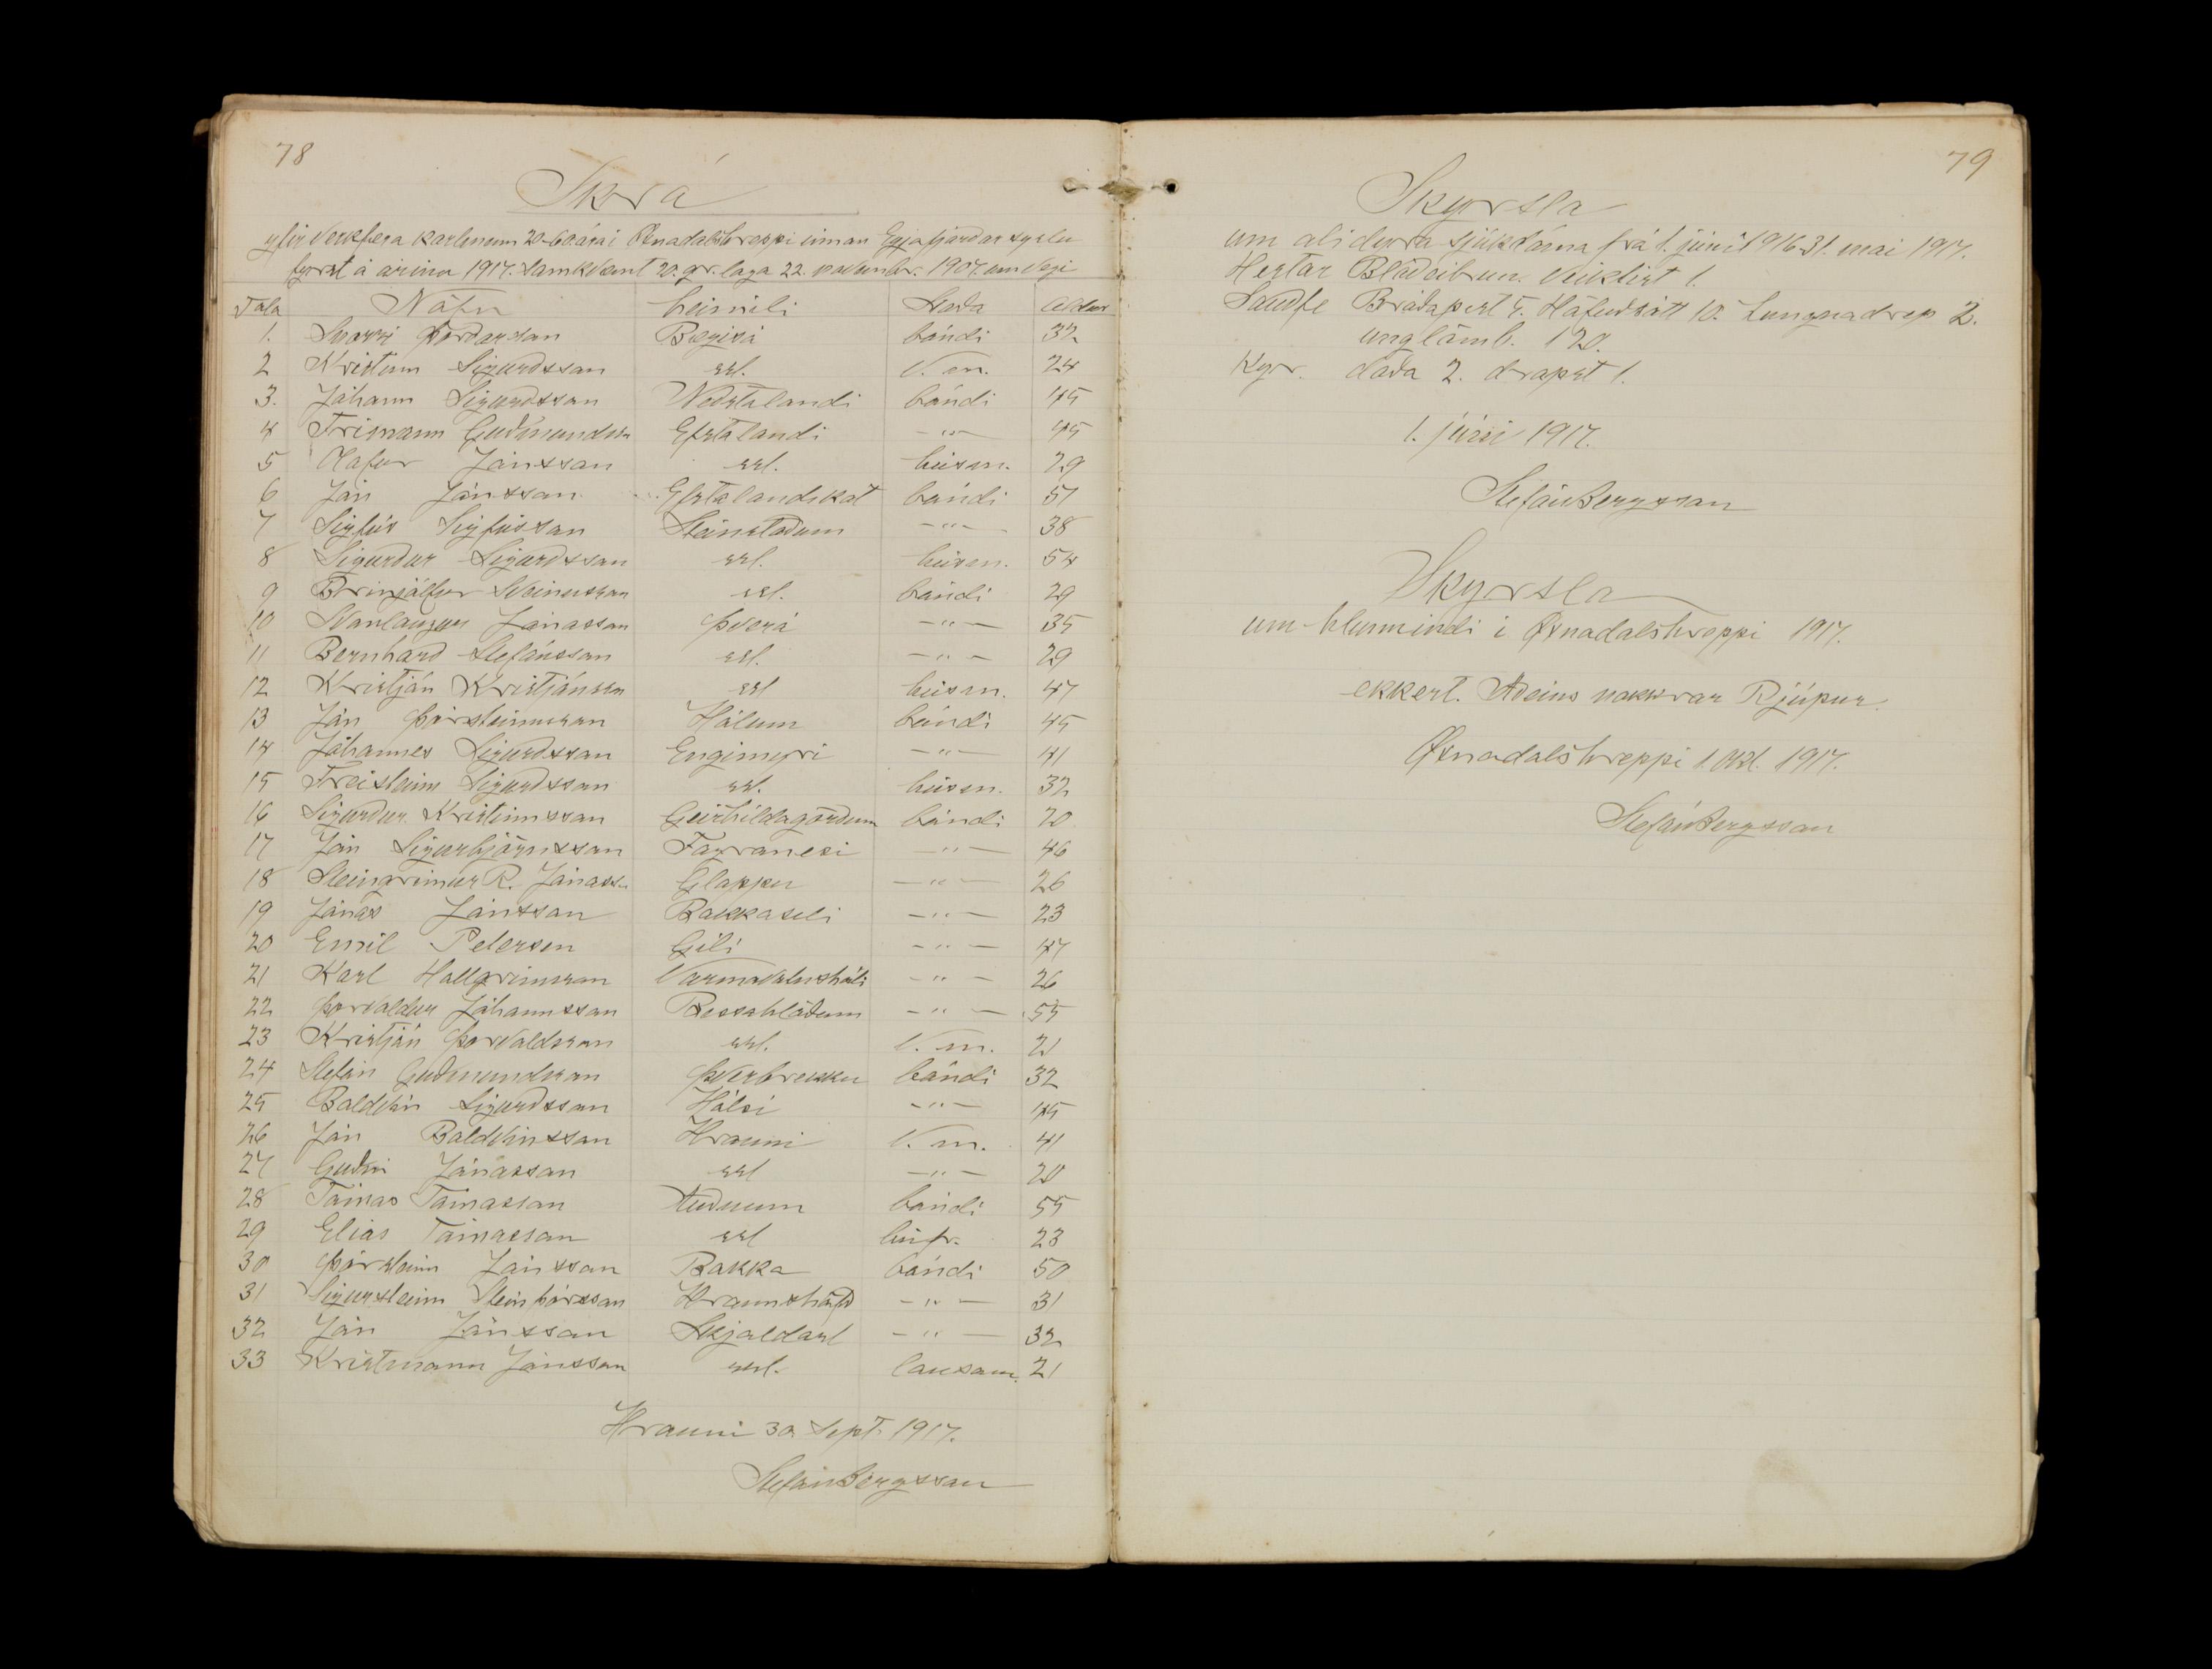 78
Skrá
yfir verkfæra karlmenn 20-60 ára í Öxnadalshreppi innan Eyjafjarðar syslu
fyrst á árinu 1917. Samkvamt 20. gr. laga 22. november. 1907. um vegi
Tala Nöfn heimili Staða aldur
1. Snorri Þórðarson Bægisá bóndi 32
2 Kristinn Sigurdsson ssl. V.m. 24
3. Jóhann Sigurdsson Neðstalandi bóndi 45
4 Frímann Guðmundsson Efstalandi -"- 45
5 Olafur Jónsson ssl. húsm. 29
6 Jón Jónsson Efstalandskot bóndi 51
7 Sigfús Sigfússon Steinstöðum -"- 38
8 Sigurdur Sigurdsson ssl. húsm. 54
9 Brinjólfur Sveinsson ssl. bóndi 29
10 Svanlaugur Jónasson Þverá -"- 35
11 Bernharð Stefánsson ssl. -"- 29
12 Kristján Kristjánsson ssl húsm. 47
13 Jón Þorsteinsson Hólum bóndi 45
14 Jóhannes Sigurdsson Engimyri -"- 41
15 Freisteinn Sigurdsson ssl. húsm. 32
16 Sigurdur Kristinsson Geirhildagörðum bóndi 20
17 Jón Sigurbjörnsson Fagranesi -"- 46
18 Steingrimur R. Jónasson Gloppu -"- 26
19 Jónas Jónsson Bakkaseli -"- 23
20 Emil Petersen Gili -"- 47
21 Karl Hallgrimsson Varmavatnshólum -"- 26
22 Þorvaldur Jóhannsson Bessahlöðum -"- 55
23 Kristján Þorvaldsson ssl. V.m. 21
24 Stefán Guðmundsson Þverbrekku bóndi 32
25 Baldvin Sigurdsson Hálsi -"- 45
26 Jón Baldvinsson Hrauni V.m. 41
27 Guðni Jónasson ssl -"- 20
28 Tómas Tómasson Auðnum bóndi 55
29 Elías Tómasson ssl búfr. 23
30 Þórsteinn Jónsson Bakka bóndi 50
31 Sigursteinn Steinþórsson Hraunshöfð -"- 31
32 Jón Jónsson Skjaldarst -"- 32
33 Kristmann Jónsson ssl. lausam. 21
Hrauni 30. Sept. 1917.
Stefán Bergsson
79
Skyrsla
um alidyra sjúkdóma frá 1. júni 1916-31. mai 1917.
Hestar Blóðeitrun. Veiktist 1.
Sauðfe Bráðapest 5. Höfuðsótt 10. Lungnadrep 2.
unglömb. 120.
Kyr. doða 2. drapst 1.
1. júní 1917.
Stefán Bergsson
Skyrsla
um hlunnindi i Öxnadalshreppi 1917.
ekkert. Aðeins nokkrar Rjúpur.
Öxnadalshreppi 1. Okt. 1917.
Stefán Bergsson